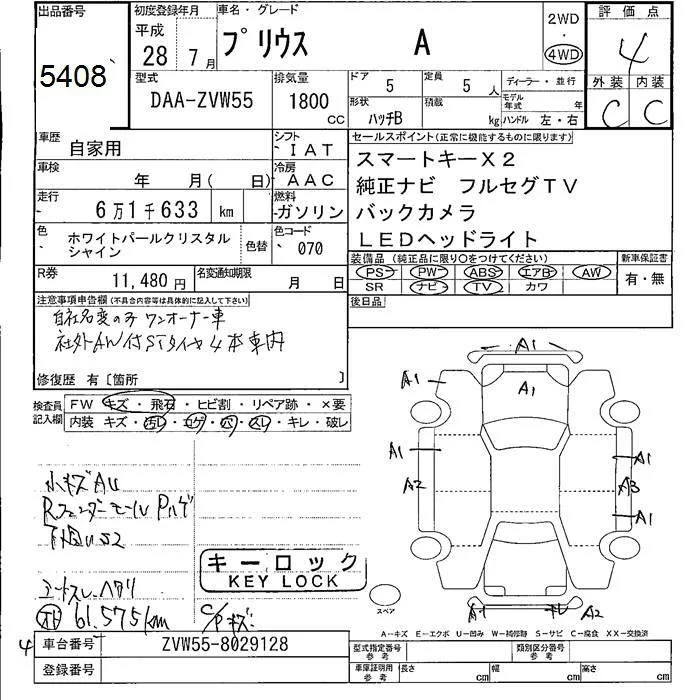 出品番号
5408
初度登録年月
平成
28 7月
車名・グレード
プリウス A
2WD
・
4WD
評価点
4
外装 内装
C C
型式
DAA-ZVW55
排気量
1800
CC
ドア
5
定員
5 人
形状
ハッチB
積載
kg
ディーラー・並行
モデル年式 年
ハンドル 左・右
車歴
自家用
シフト
IAT
車検
年 月( 日)
冷房
AAC
走行
6万1千633 km
燃料
ガソリン
色
ホワイトパールクリスタル
シャイン
色替
色コード
070
R券
11,480円
名変通知期限
月 日
セールスポイント(正常に機能するものに限ります)
スマートキーX2
純正ナビ フルセグTV
バックカメラ
LEDヘッドライト
装備品 (純正品に限り○をつけてください)
PS PW ABS エアB AW
SR ナビ TV カワ
新車保証書
有・無
後日品
注意事項申告欄(不具合内容等は具体的に記入して下さい)
自社名変のみ ワンオーナー車
社外AW付STタイヤ4本車内
修復歴 有〔箇所 〕
検査員
記入欄
FW キズ・飛石・ヒビ割・リペア跡・×要
内装 キズ・汚レ・コゲ・穴・スレ・キレ・破レ
小キズAU
Rフェンダーモール Pハゲ
下回りS2
コートスレ・ヘタリ
61.575km
C/Pキズ
キーロック
KEY LOCK
A1
A1
A1
A1
A1
A2
A3
A1
A1
キレ
A2
スペア
A-キズ E-エクボ U-凹み W-補修跡 S-サビ C-腐食 XX-交換済
4
車台番号
ZVW55-8029128
登録番号
型式指定番号
参考
類別区分番号
参考
車庫証明用
参考
長さ cm
幅 cm
高さ cm